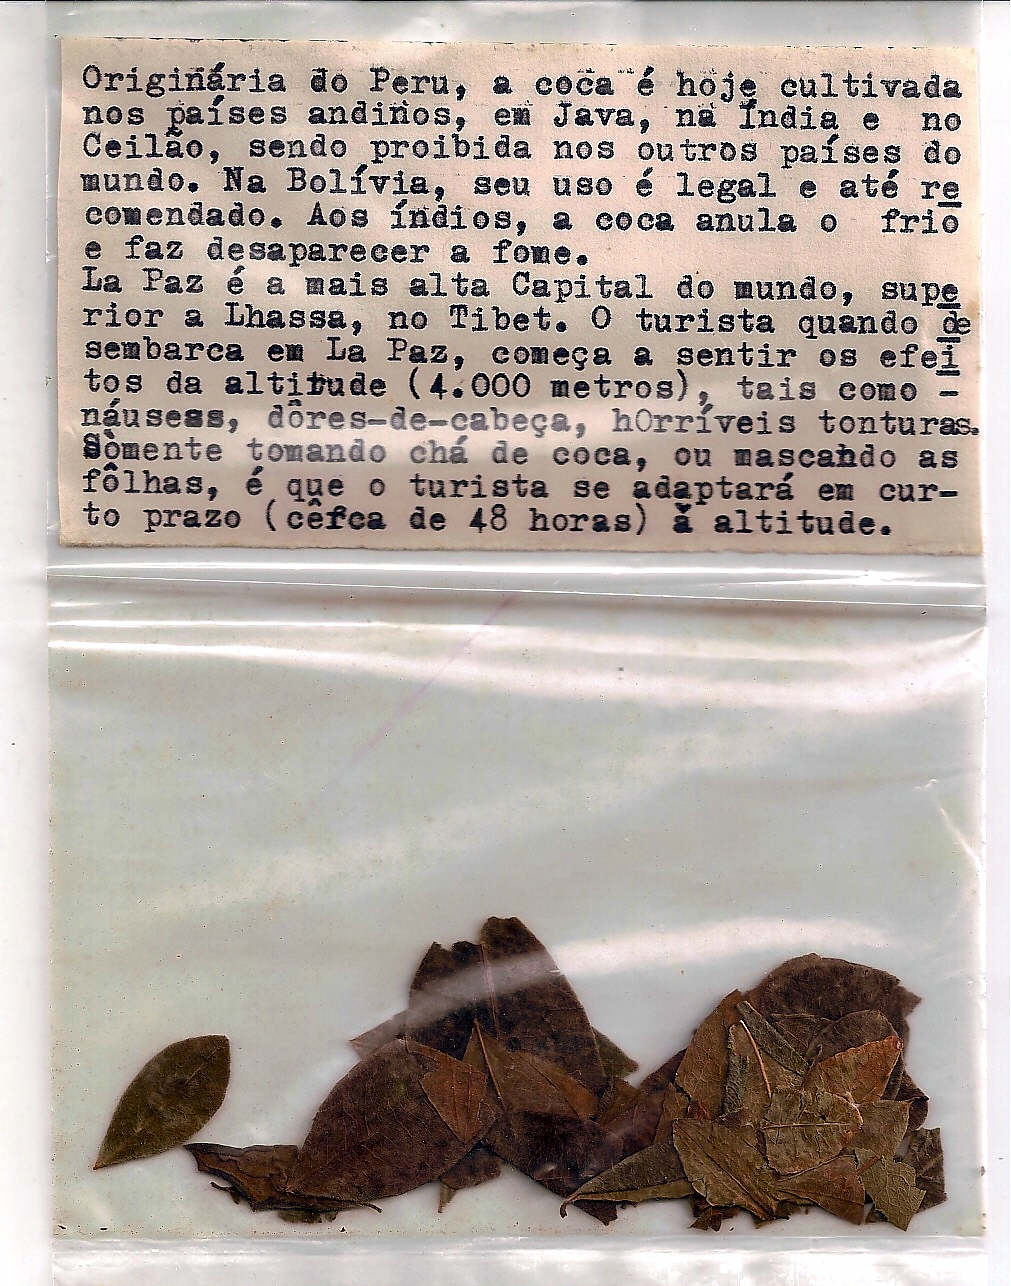 Originária do Peru, a coca é hoje cultivada
nos países andinos, em Java, na Índia e no
Ceilão, sendo proibida nos outros países do
mundo. Na Bolívia, seu uso é legal e até re
comendado. Aos índios, a coca anula o frio
e faz desaparecer a fome.
La Paz é a mais alta Capital do mundo, supe
rior a Lhassa, no Tibet. O turista quando de
sembarca em La Paz, começa a sentir os efei
tos da altitude (4.000 metros), tais como -
náuseas, dôres-de-cabeça, hOrríveis tonturas.
Sòmente tomando chá de coca, ou mascando as
fôlhas, é que o turista se adaptará em cur-
to prazo (cêrca de 48 horas) à altitude.